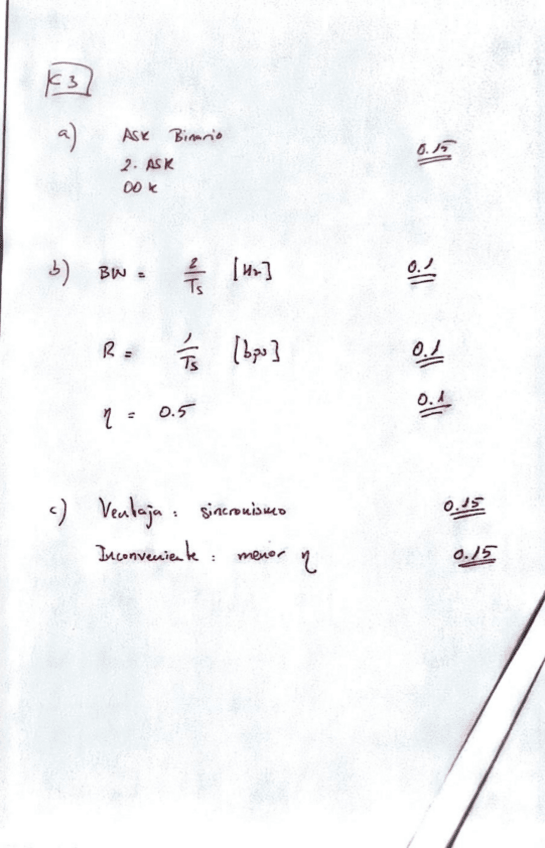 C3
a) ASK Binario 0.15
2-ASK
OOK
b) BW = 2/Ts [Hz] 0.1
R = 1/Ts [bps] 0.1
η = 0.5 0.1
c) Ventaja: sincronismo 0.15
Inconveniente: menor η 0.15